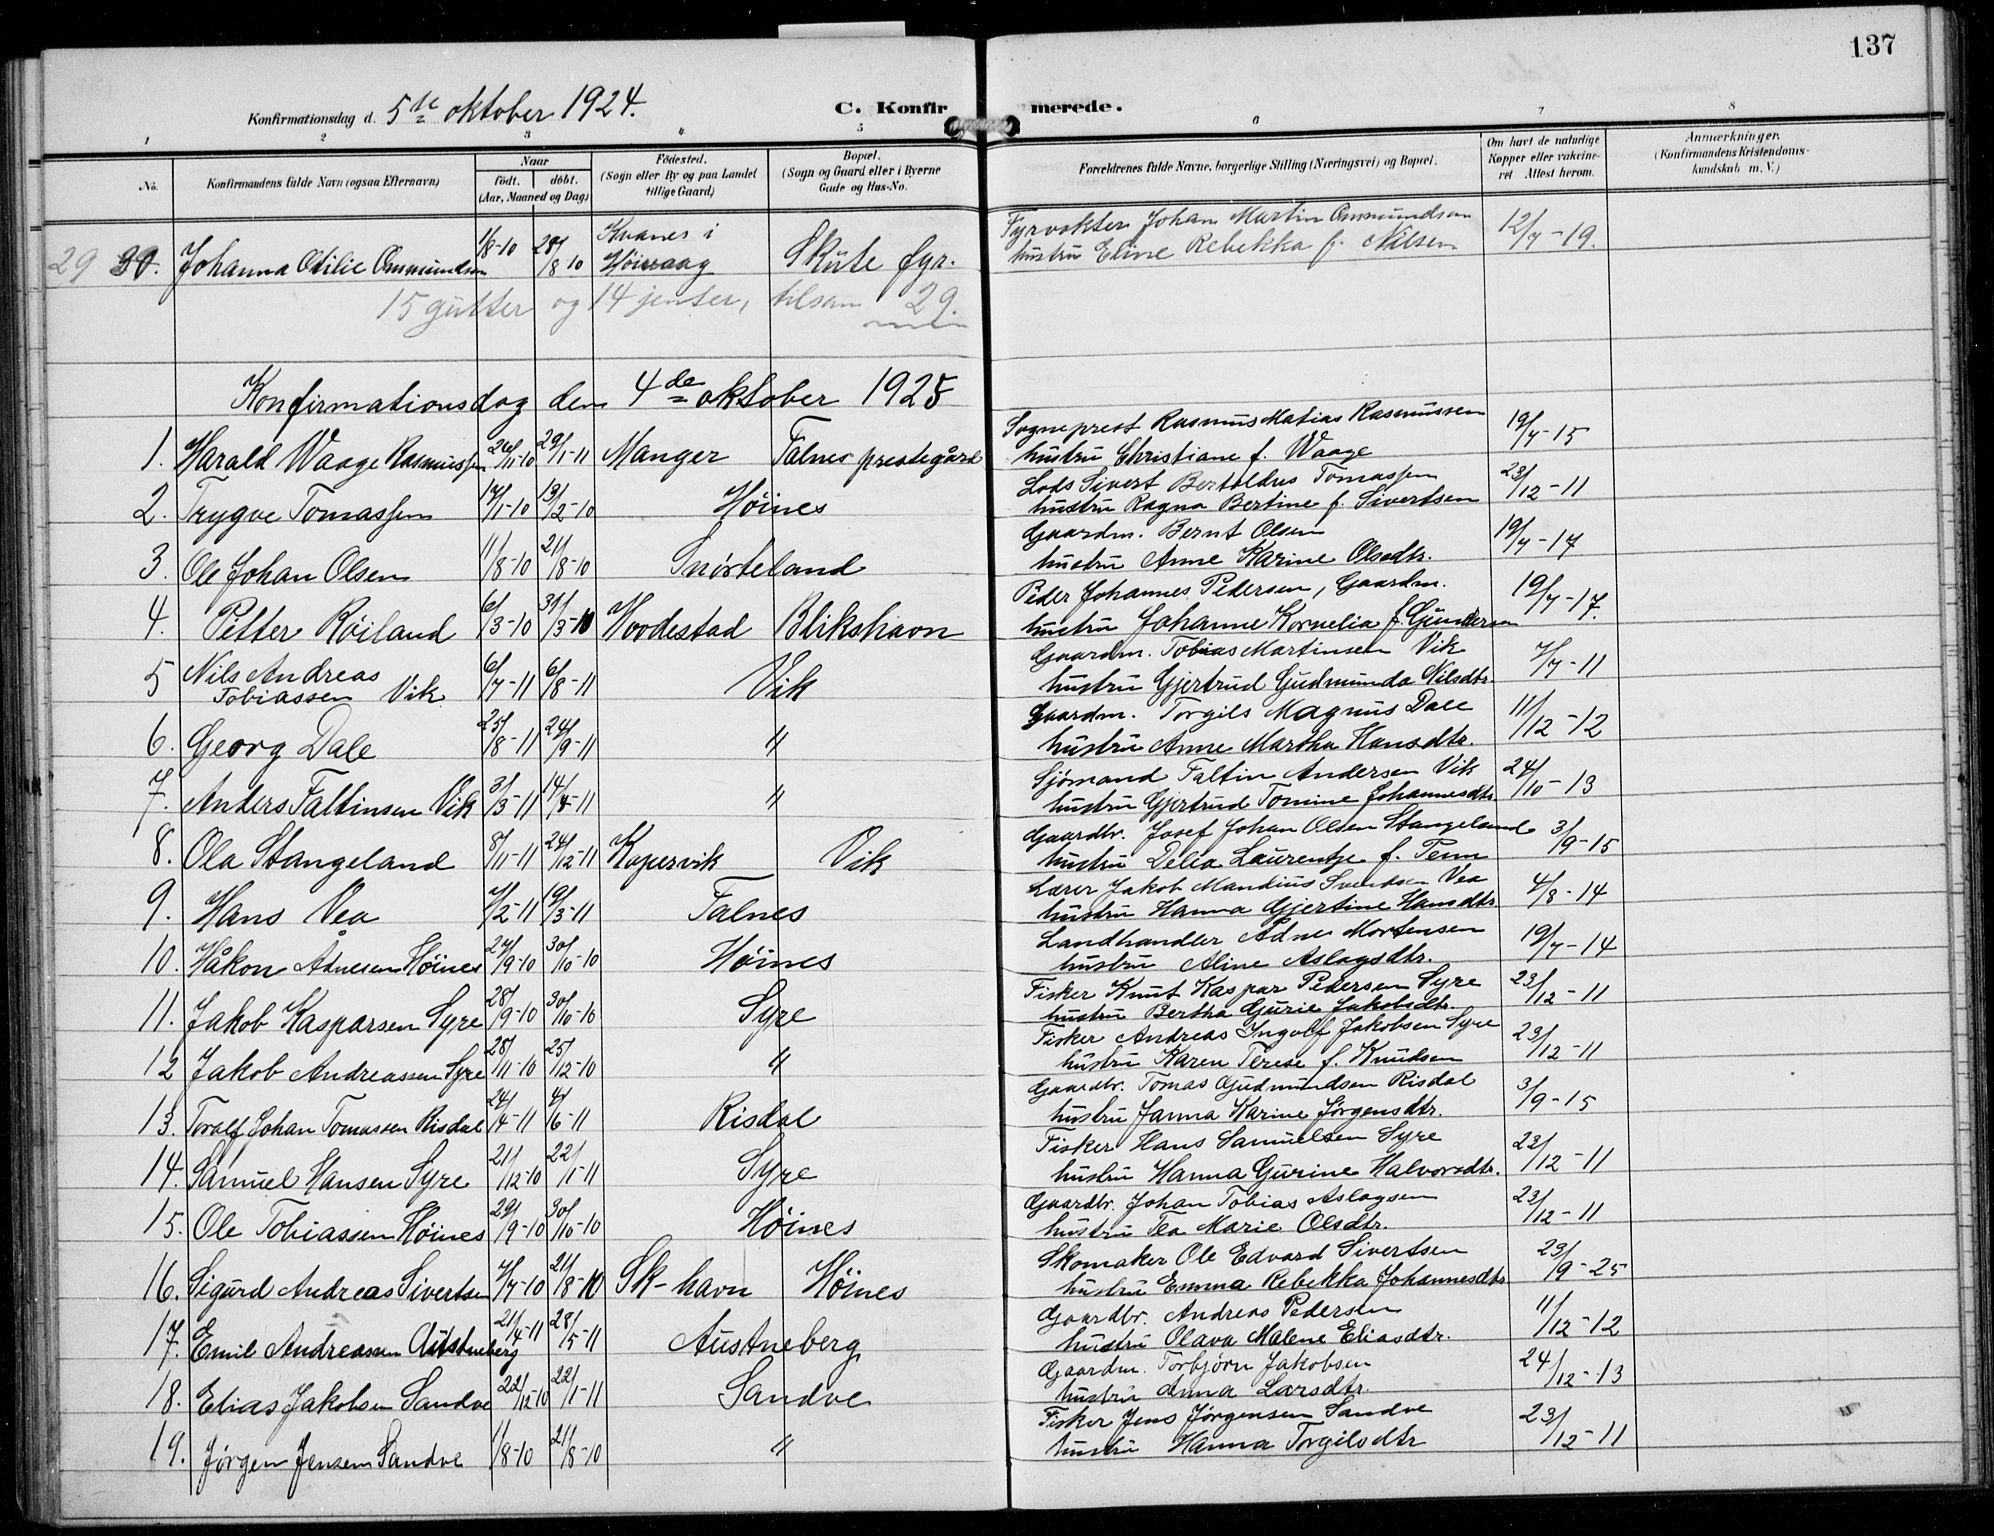 137
Konfirmationsdag d. 5te oktober 1924.
C. Konfirmerede.
1 2 3 4 5 6 7 8
No. Konfirmandens fulde Navn (ogsaa Efternavn) Naar født. døbt. (Aar, Maaned og Dag) Fødested. (Sogn eller By og paa Landet tillige Gaard) Bopæl. (Sogn og Gaard eller i Byerne Gade og Hus-No. Forældrenes fulde Navne, borgerlige Stilling (Næringsvei) og Bopæl. Om havt de naturlige Kopper eller vakcineret Attest herom. Anmærkninger. (Konfirmandens Kristendomskundskab m. V.)
29 30. Johanna Otilie Ommundsen 1/8-10 28/8 10 Kvanes i Høivaag Skute fyr. Fyrvokter Johan Martin Ommundsen 12/7-19.
hustru Eline Rebekka f. Nilsen
15 gutter og 14 jenter, tilsam 29.
Konfirmationsdag den 4de oktober 1925
1. Harald Waage Rasmussen 26/11-10 29/1-11 Manger Falnes prestegård Sogneprest Rasmus Matias Rasmussen 19/7-15
hustru Christiane f. Waage
2. Trygve Tomassen 17/1-10 13/2-10 Høines Lods Sivert Bertoldus Tomassen 23/12-11
hustru Ragna Bertine f. Sivertsen
3. Ole Johan Olsen 11/8-10 21/8-10 Snørteland Gaardm. Bernt Olsen 19/7-17
hustru Anne Karine Olsdtr.
4. Petter Røiland 6/3-10 31/3-10 Hovdestad Blikshavn Peder Johannes Pedersen, Gaardm. 19/7-17.
hustru Johanne Kornelia f. Gundersen
5 Nils Andreas Tobiassen Vik 6/7-11 6/8-11 Vik Gaardm. Tobias Martinsen Vik 7/7-11
hustru Gjertrud Gudmunda Nilsdtr.
6. Georg Dale 25/8-11 24/9-11 " Gaardm. Torgils Magnus Dale 11/12-12
hustru Anne Martha Hansdtr.
7. Anders Faltinsen Vik 3/3-11 17/4-11 " Sjömand Faltin Andersen Vik 24/10-13
hustru Gjertrud Tomine Johannesdtr
8. Ola Stangeland 8/11-11 24/12-11 Kopervik Vik Gaardbr. Josef Johan Olsen Stangeland 3/9-15
hustru Delia Laurentze f.
9. Hans Vea 7/2-11 19/3-11 Falnes Lærer Jakob Mandius Svendsen Vea 4/8-14
hustru Hanna Gjertine Hansdtr.
10. Håkon Adnesen Høines 27/9-10 30/10-10 Høines Landhandler Adne Mortensen 19/7-14
hustru Aline Aslagsdtr.
11. Jakob Kasparsen Syre 28/9-10 30/10-10 Syre Fisker Knut Kaspar Pedersen Syre 23/12-11
hustru Bertha Gurie Jakobsdtr.
12 Jakob Andreassen Syre 28/11-10 25/12-10 " Fisker Andreas Ingolf Jakobsen Syre 23/12-11
hustru Karen Terese f. Knudsen
13. Toralf Johan Tomassen Risdal 24/4-11 4/6-11 Risdal Gaardbr. Tomas Gudmundsen Risdal 3/9-15
hustru Janna Karine Jørgensdtr.
14. Samuel Hansen Syre 21/12-10 22/1-11 Syre Fisker Hans Samuelsen Syre 23/12-11
hustru Hanna Gurine Halvorsdtr.
15. Ole Tobiassen Høines 29/9-10 30/10-10 Høines Gaardbr. Johan Tobias Aslagsen 23/12-11
hustru Tea Marie Olsdtr.
16. Sigurd Andreas Sivertsen 7/7-10 21/8-10 Sk-havn Høines Skomaker Ole Edvard Sivertsen 23/9-25
hustru Emma Rebekka Johannesdtr
17. Emil Andreassen Austneberg 21/4-11 28/5-11 Austneberg Gaardbr. Andreas Pedersen 11/12-12
hustru Olava Malene Eliasdtr.
18. Elias Jakobsen Sandve 22/12-10 22/1-11 Sandve Gaardm. Torbjørn Jakobsen 24/12-13
hustru Anna Larsdtr.
19. Jørgen Jensen Sandve 1/8-10 21/8-10 " Fisker Jens Jørgensen Sandve 23/12-11
hustru Hanna Torgilsdtr